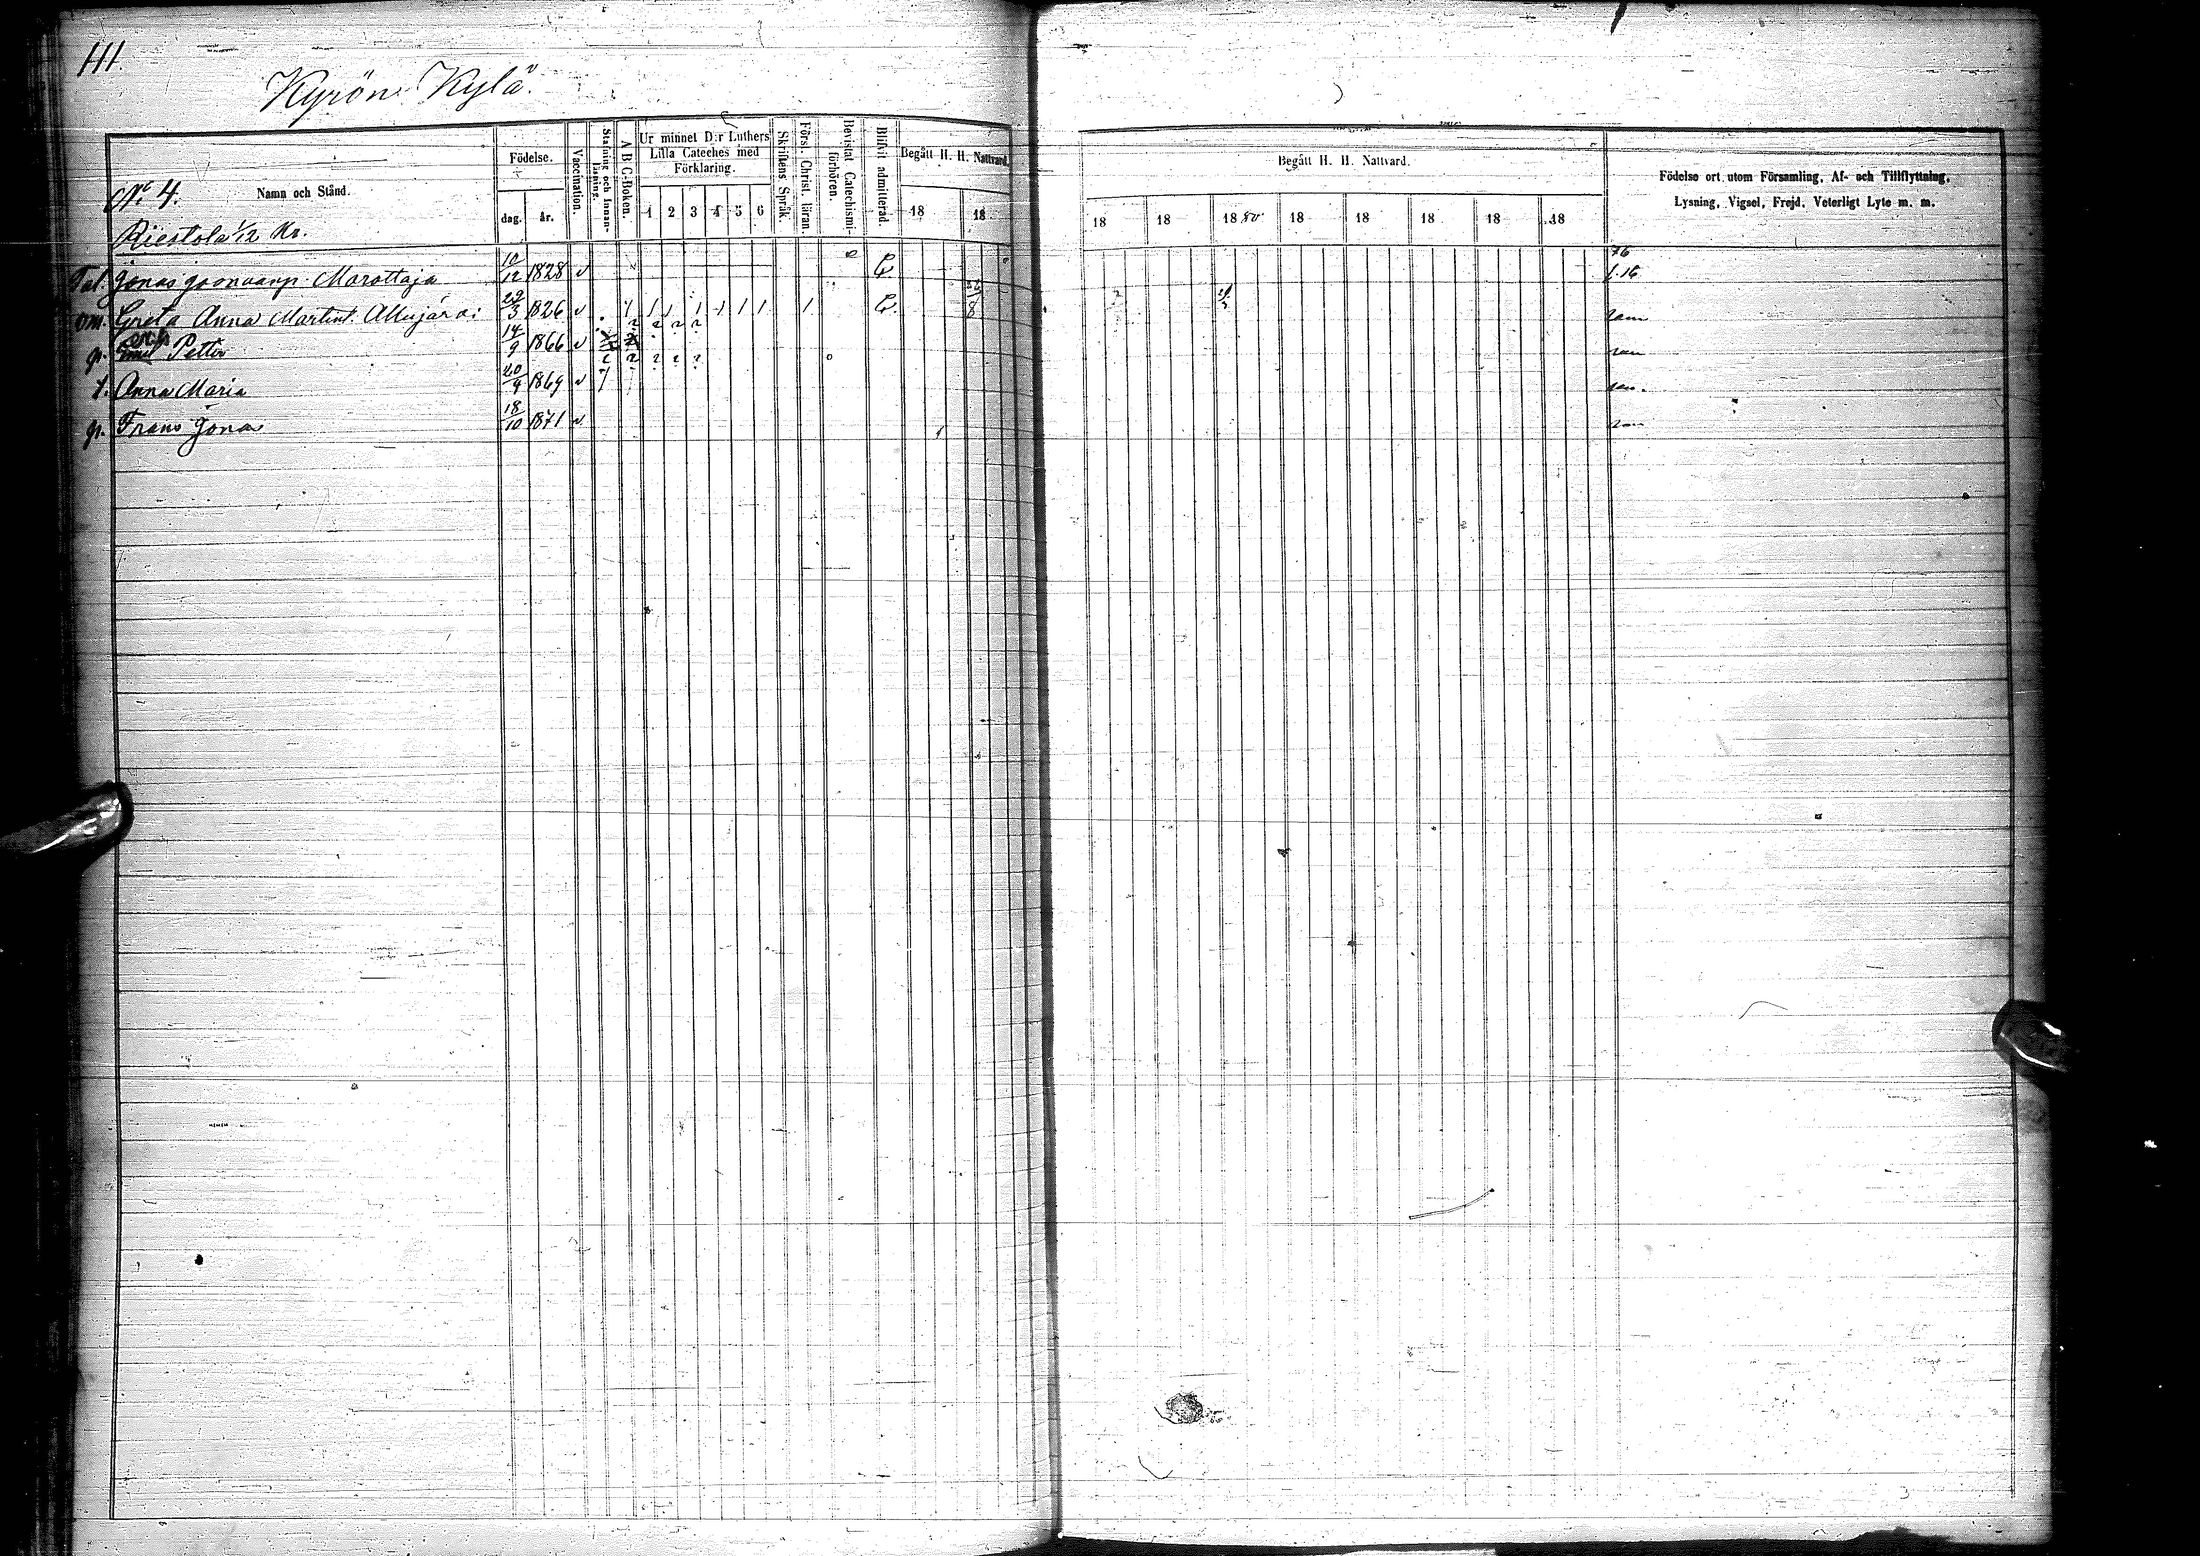 111.
Kyrön Kylä.
Namn och Stånd.
Födelse.
dag. år.
Vaccination.
Stafning och Innanläsning.
A B C-Boken.
Ur minnet D:r Luthers
Lilla Cateches med
Förklaring.
1 2 3 4 5 6
Skriftens Språk.
Förs. Christ. läran.
Bevistat Catechismi-
förhören.
Blifvit admitterad.
Begått H. H. Nattvard.
18 18
Begått H. H. Nattvard.
18 18 18 80 18 18 18 18 18
Födelse ort utom Församling, Af- och Tillflyttning,
Lysning, Vigsel, Frejd, Veterligt Lyte m. m.
No 4.
Riestola 1/12 Kr.
Tal. Jonas Joonaanp. Marottaja 10/12 1828 v 76 f. 16
om. Greta Anna Martint. Alujärvi 29/3 1826 v 1 1 1 1 1 1 1 1
p. Petter 14/9 1866 v
t. Anna Maria 20/9 1869 v
p. Frans Jonas 18/10 1871 v